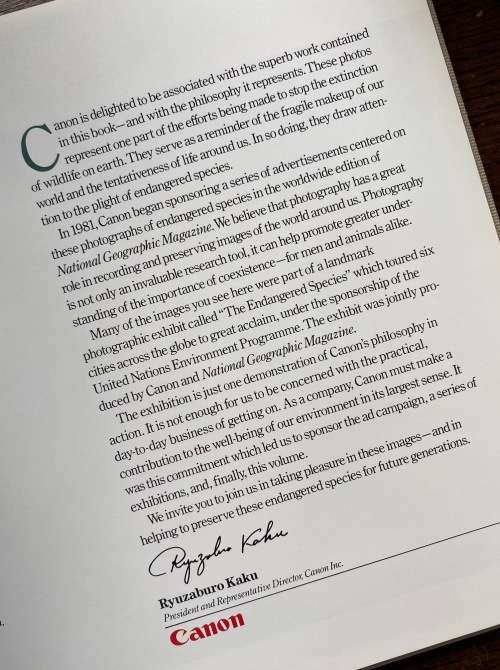 Canon is delighted to be associated with the superb work contained
in this book—and with the philosophy it represents. These photos
represent one part of the efforts being made to stop the extinction
of wildlife on earth. They serve as a reminder of the fragile makeup of our
world and the tentativeness of life around us. In so doing, they draw atten-
tion to the plight of endangered species.
In 1981, Canon began sponsoring a series of advertisements centered on
these photographs of endangered species in the worldwide edition of
National Geographic Magazine. We believe that photography has a great
role in recording and preserving images of the world around us. Photography
is not only an invaluable research tool, it can help promote greater under-
standing of the importance of coexistence—for men and animals alike.
Many of the images you see here were part of a landmark
photographic exhibit called "The Endangered Species" which toured six
cities across the globe to great acclaim, under the sponsorship of the
United Nations Environment Programme. The exhibit was jointly pro-
duced by Canon and National Geographic Magazine.
The exhibition is just one demonstration of Canon's philosophy in
action. It is not enough for us to be concerned with the practical,
day-to-day business of getting on. As a company, Canon must make a
contribution to the well-being of our environment in its largest sense. It
was this commitment which led us to sponsor the ad campaign, a series of
exhibitions, and, finally, this volume.
We invite you to join us in taking pleasure in these images—and in
helping to preserve these endangered species for future generations.
Ryuzaburo Kaku
Ryuzaburo Kaku
President and Representative Director, Canon Inc.
Canon